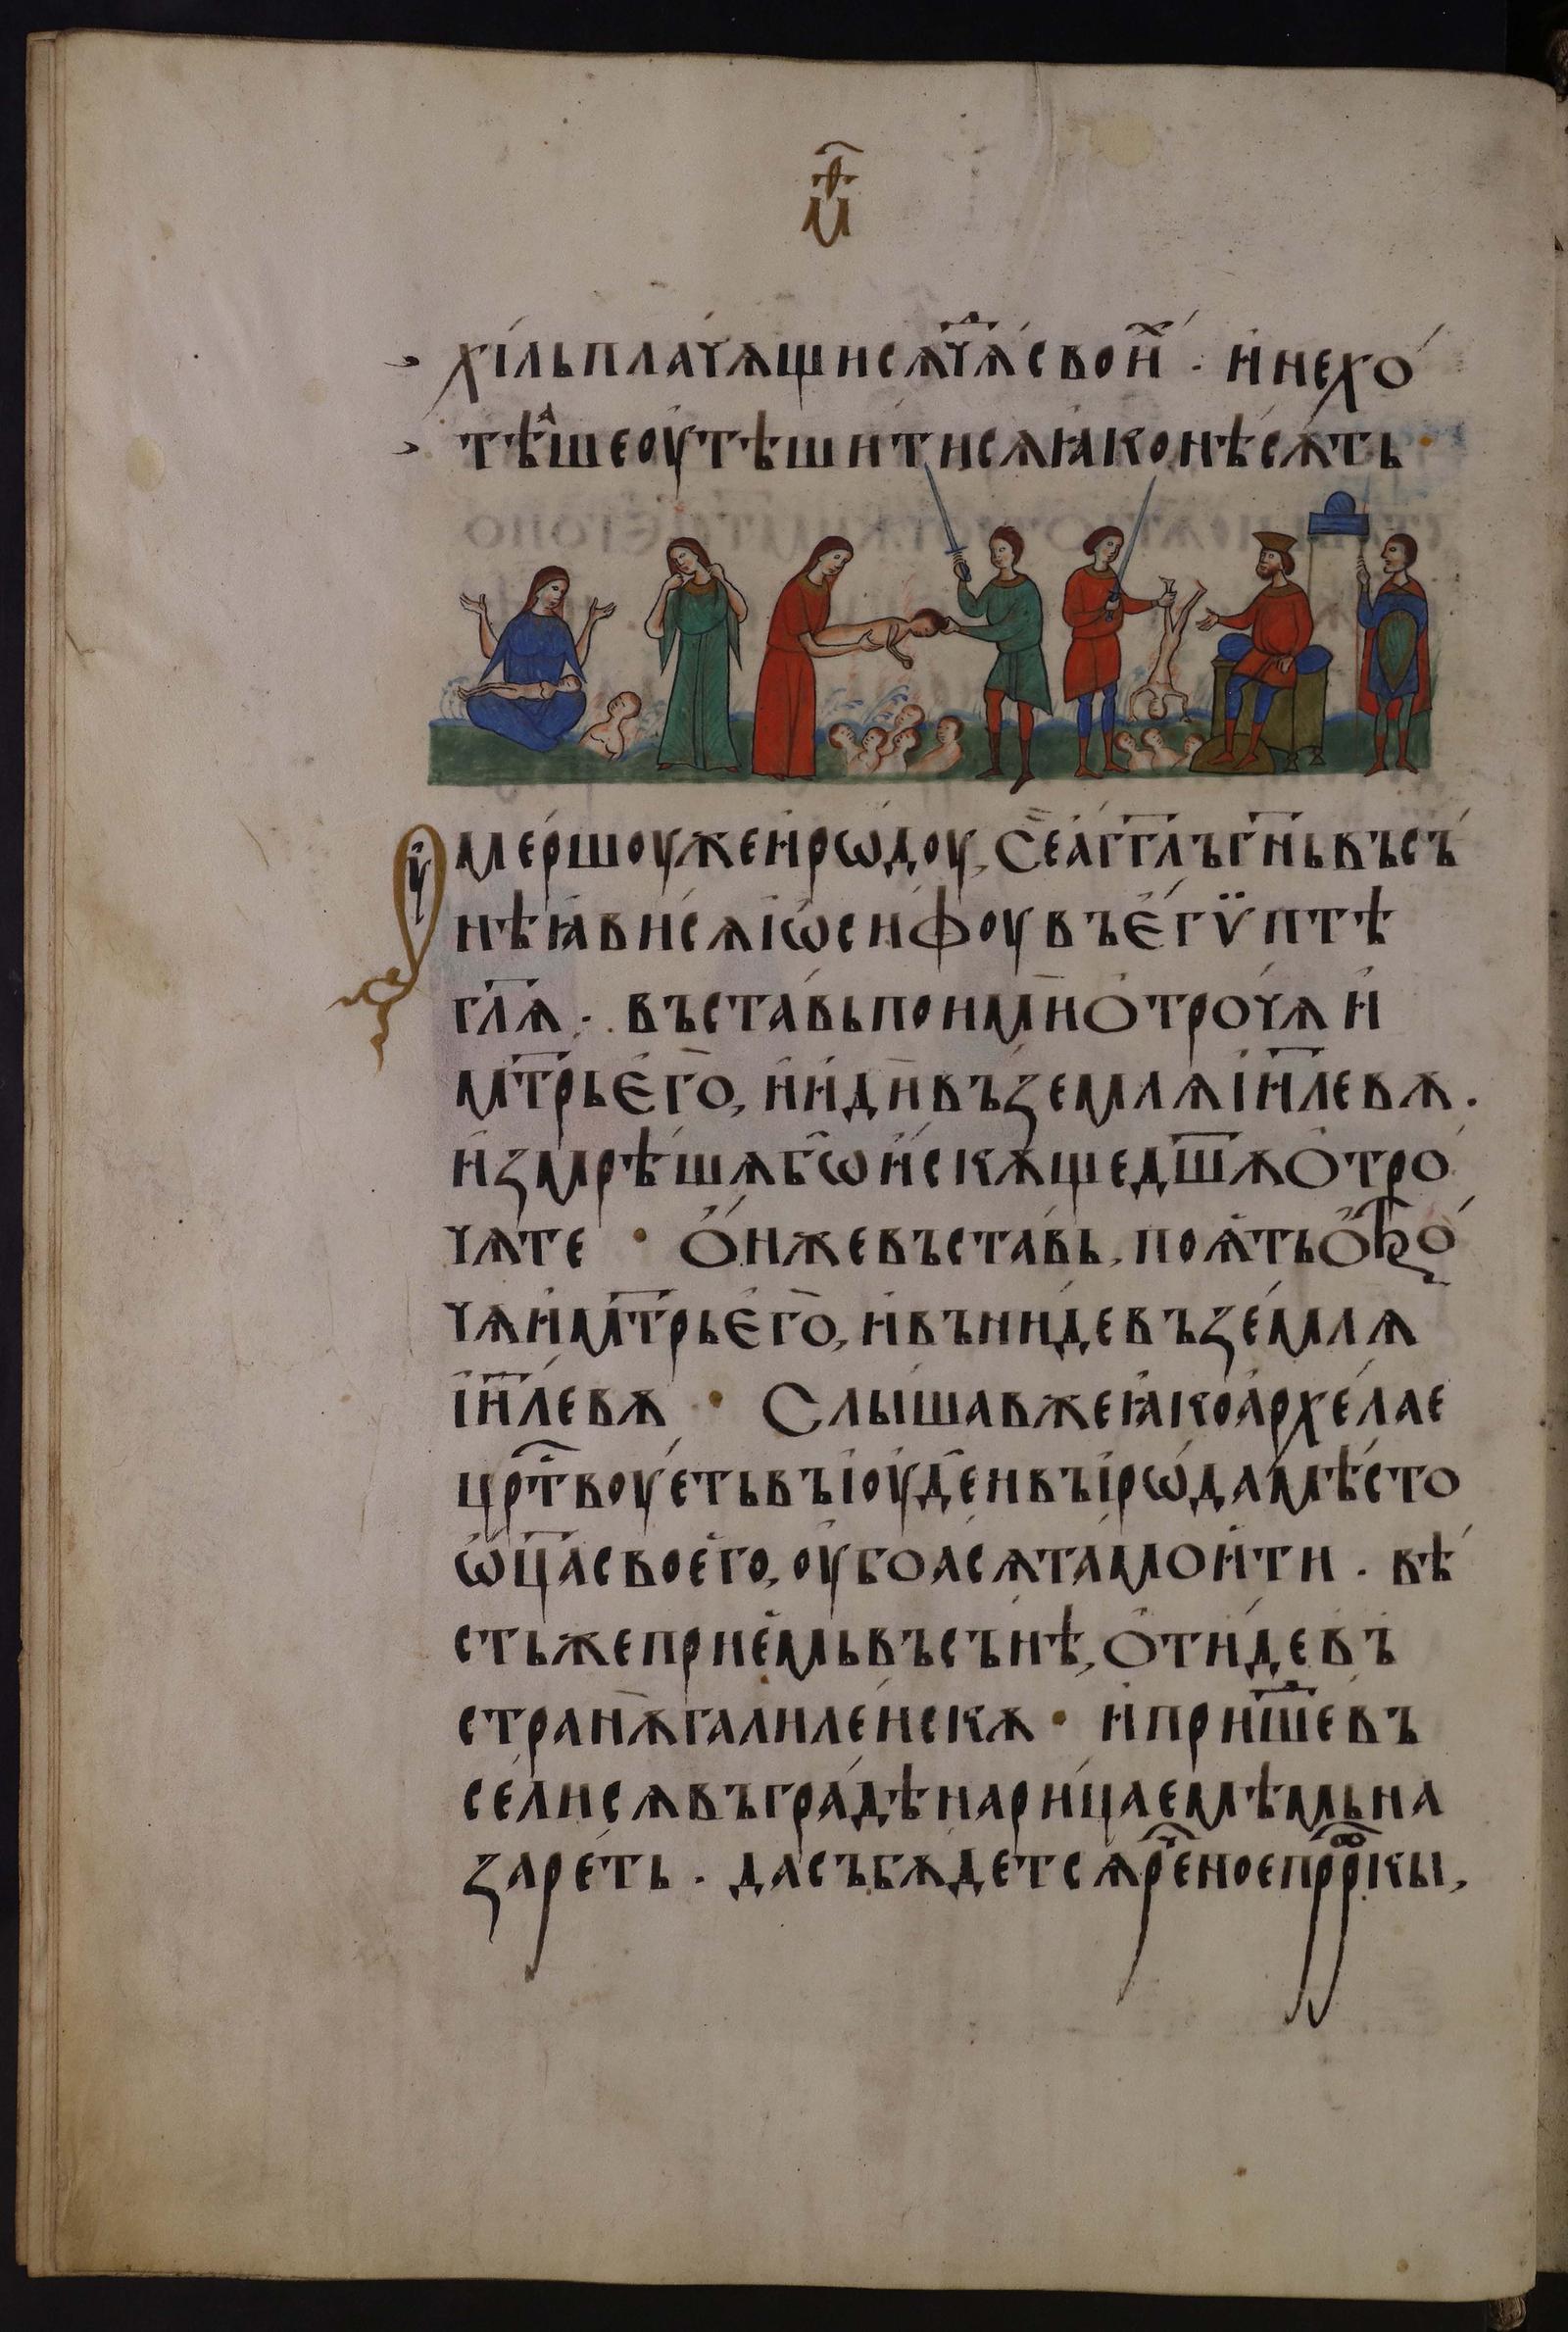 м҃т
хі́льплачѧщисѧчѧ̑⁠дсвои́х · и҆нехо́
тѣ̑шеоутѣшитисѧꙗ҆конѣсѫ́ть ·
Оу҆ме́ршоужеи҆рѡ́доу, Сѐа҆́гг҃лъг҃ньвъсъ́
нѣꙗ҆ви́сѧі҆ѡ́сифоувъе҆гѵ́птѣ
гл҃ѧ · въста́вьпоимѝо҆троча̀ѧи҆
мт҃рье҆гѡ̀, и҆и҆дѝвъземлѧі҆и҃левѫ ·
и҆змрѣ́шѧбѡ̑и҆́скѫщедш҃ѫѻ҆тро́
чѧте · О҆́нжевъста́вь, поѧ́тьо҆тро́
чѧи҆мт҃рье҆го̀, и҆въни́девъзе́млѧ
і҆и҃́левѫ · Слы́шавжеꙗ҆коа҆рхе́лае
црⷭ҇твоу́етьвъі҆оуде́ивъі҆́рѡ́дамѣ́сто
ѡ҆ц҃асвоего̀, оу҆боа́сѧта́мои҆ти · вѣ́
стьжеприе́мьвъсъ́нѣ, о҆ти́девъ
странѫ̀галиле́искѫ · и҆прише́⁠двъ
сели́сѧвъгра́дѣнари́цаемѣмьна
заре́ть · дасъбѫ́детсѧре҃ное прⷪ҇рⷪ҇кы,